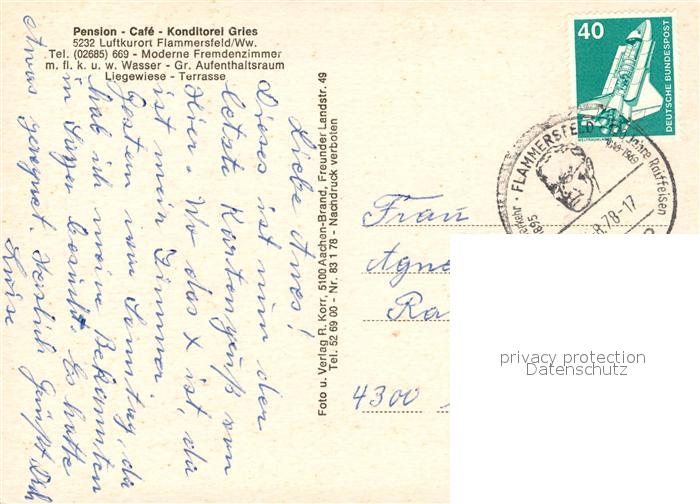 Pension - Café - Konditorei Gries
5232 Luftkurort Flammersfeld/Ww.
Tel. (02685) 669 - Moderne Fremdenzimmer
m. fl. k. u. w. Wasser - Gr. Aufenthaltsraum
Liegewiese - Terrasse
Liebe Agnes!
Dieses ist nun der
letzte Kartengruß von
Hier. Wo das X ist, da
ist mein Zimmer.
Gestern am Sonntag, da
hab ich meine Bekannten
in Siegen besucht. Es hatte
etwas geregnet. Herzlich Grüßt Dich
Luise
Foto u. Verlag R. Korr, 5100 Aachen-Brand, Freunder Landstr. 49
Tel. 52 69 00 - Nr. 83 1 78 - Nachdruck verboten
40
DEUTSCHE BUNDESPOST
WELTRAUMLABOR
FLAMMERSFELD
Jahre Raiffeisen
.8.78-17
Frau
4300
privacy protection
Datenschutz